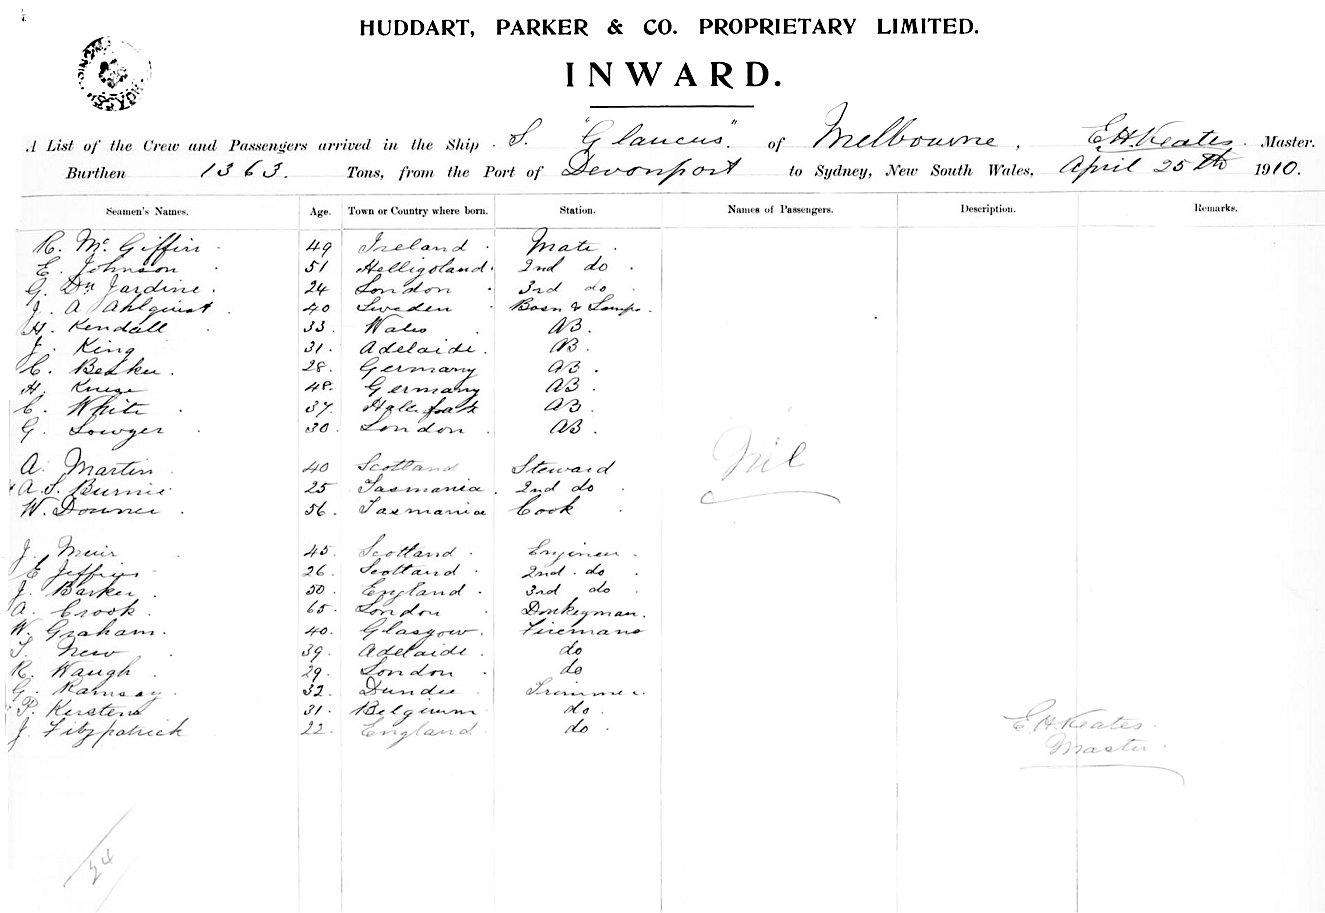 HUDDART, PARKER & CO. PROPRIETARY LIMITED.
INWARD.
A List of the Crew and Passengers arrived in the Ship S. "Glaucus" of Melbourne, E.H. Keates. Master.
Burthen 1363. Tons, from the Port of Devonport to Sydney, New South Wales, April 25th 1910.
Seamen's Names. Age. Town or Country where born. Station. Names of Passengers. Description. Remarks.
R. Mc Giffin 49 Ireland Mate
E. Johnson 51 Helligoland 2nd do
G. Jardine 24 London 3rd do
J. A Ahlquist 40 Sweden Bosn & Lamps
H. Kendall 33 Wales AB
J. King 31 Adelaide AB
C. 28 Germany AB
H. Kruse 48 Germany AB
C. White 37 Halifax AB
G. Sawyer 30 London AB
A. Martin 40 Scotland Steward
Nil
A. S. Burnie 25 Tasmania 2nd do
W. 56 Tasmania Cook
J. Muir 45 Scotland Engineer
E Jeffries 26 Scotland 2nd do
J. Barker 50 England 3rd do
A. Crook 65 London Donkeyman
W. Graham 40 Glasgow Firemans
T. New 39 Adelaide do
R. Waugh 29 London do
G. Ramsay 32 Dundee Trimmer
P. Kerstens 31 Belgium do
J. Fitzpatrick 22 England do
E.H. Keates
Master
24